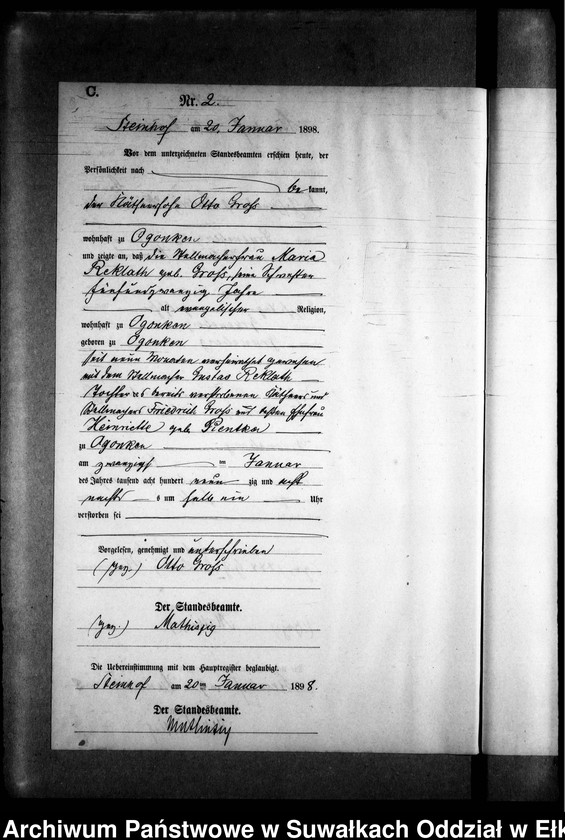 C.
Nr. 2.
Steinhof am 20. Januar 1898.
Vor dem unterzeichneten Standesbeamten erschien heute, der
Persönlichkeit nach
be kannt,
der Käthnersohn Otto Groß
wohnhaft zu Ogonken
und zeigte an, daß die Stellmacherfrau Maria
Reklath geb. Groß, seine Schwester
fünfundzwanzig Jahre
alt evangelischer Religion,
wohnhaft zu Ogonken
geboren zu Ogonken
seit neun Monaten verheirathet gewesen
mit dem Stellmacher Gustav Reklath
Tochter des bereits verstorbenen Käthners und
Stellmachers Friedrich Groß und dessen Ehefrau
Heinriette geb. Pientka
zu Ogonken
am zwanzigst en Januar
des Jahres tausend acht hundert neun zig und acht
nachts s um halb ein Uhr
verstorben sei
Vorgelesen, genehmigt und unterschrieben
(gez.) Otto Groß
Der Standesbeamte.
(gez.) Mathiszig
Die Uebereinstimmung mit dem Hauptregister beglaubigt.
Steinhof am 20ten Januar 1898.
Der Standesbeamte.
Mathiszig
Archiwum Państwowe w Suwałkach Oddział w Ełk